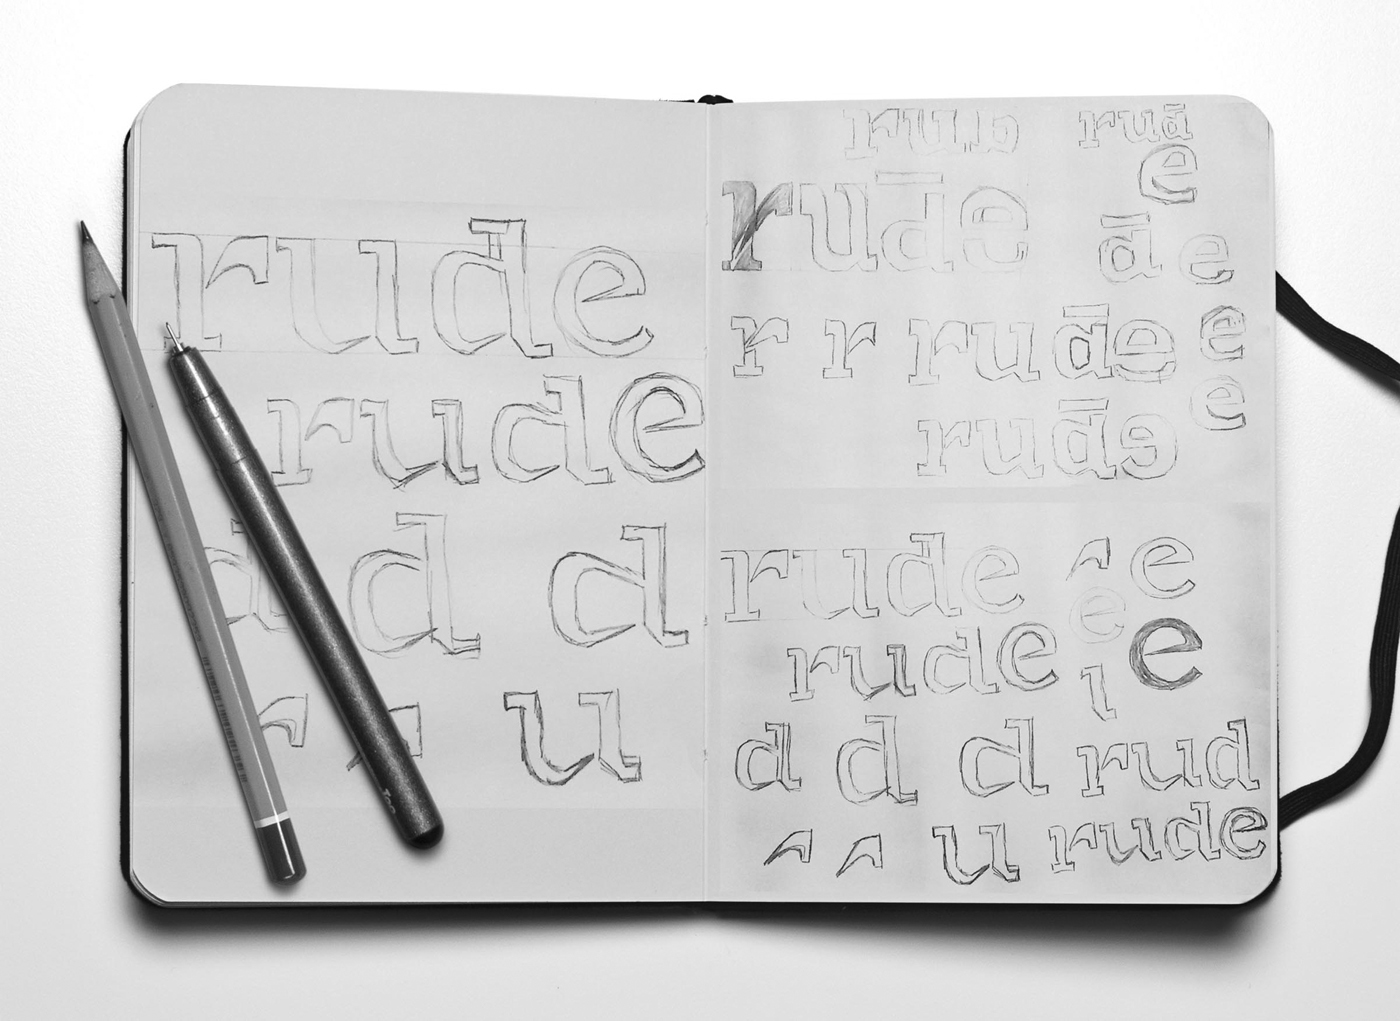 rude
rude
d d d
r r u
rud ruā
e
rudē
ā e
r r rudē e
e
rudē
rude r e
e
rude e
ı
d d d rud
r r u rude